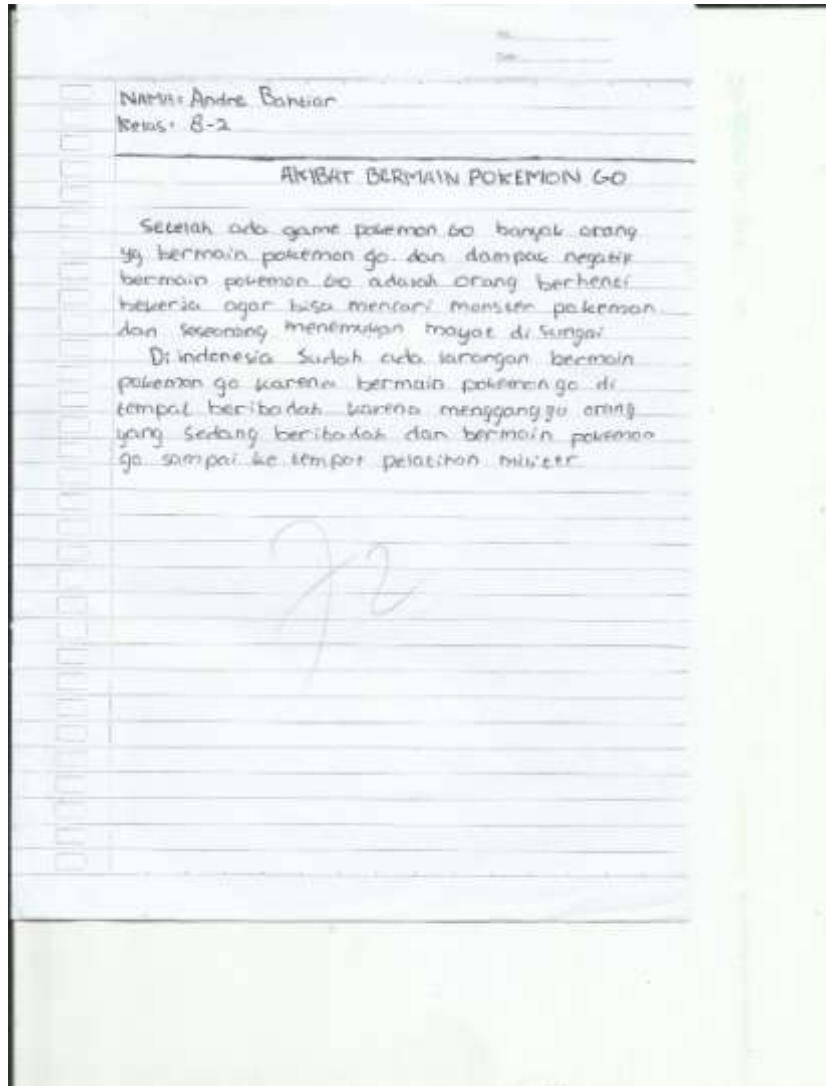 No.
Date
NAMA: Andre Bantiar
Kelas: 8-2
AKIBAT BERMAIN POKEMON GO
Setelah ada game pokemon Go banyak orang
yg bermain pokemon go. dan dampak negatip
bermain pokemon Go adalah orang berhenti
bekerja agar bisa mencari monster pokemon.
dan seseorang menemukan mayat di sungai
Di indonesia Sudah ada larangan bermain
pokemon go karena bermain pokemon go di
tempat beribadah karena mengganggu orang
yang sedang beribadah dan bermain pokemon
go sampai ke tempat pelatihan militer
72